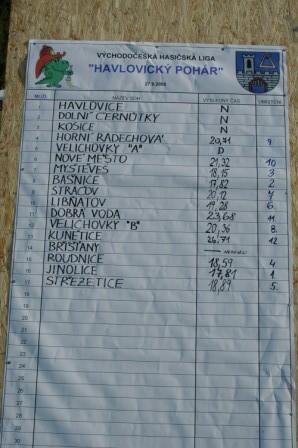 VÝCHODOČESKÁ HASIČSKÁ LIGA
"HAVLOVICKÝ POHÁR"
27.9.2008
MUŽI NÁZEV SDH VÝSLEDNÝ ČAS UMÍSTĚNÍ
1 HAVLOVICE N
2 DOLNÍ ČERNŮTKY N
3 KOŠICE N
4 HORNÍ RADECHOVÁ 20,71 9.
5 VELICHOVKY "A" D
6 NOVÉ MĚSTO 21,32 10
7 MYŠTĚVES 18,15 3
8 BAŠNICE 17,82 2
9 STRAČOV 20,12 7
10 LIBŇATOV 19,28 6.
11 DOBRÁ VODA 23,68 11.
12 VELICHOVKY "B" 20,36 8.
13 KUNĚTICE 24,71 12
14 BŘÍŠŤANY
15 ROUDNICE 18,59 4
16 JINOLICE 17,81 1.
17 STŘEZETICE 18,89 5.
18
19
20
21
22
23
24
25
26
27
28
29
30